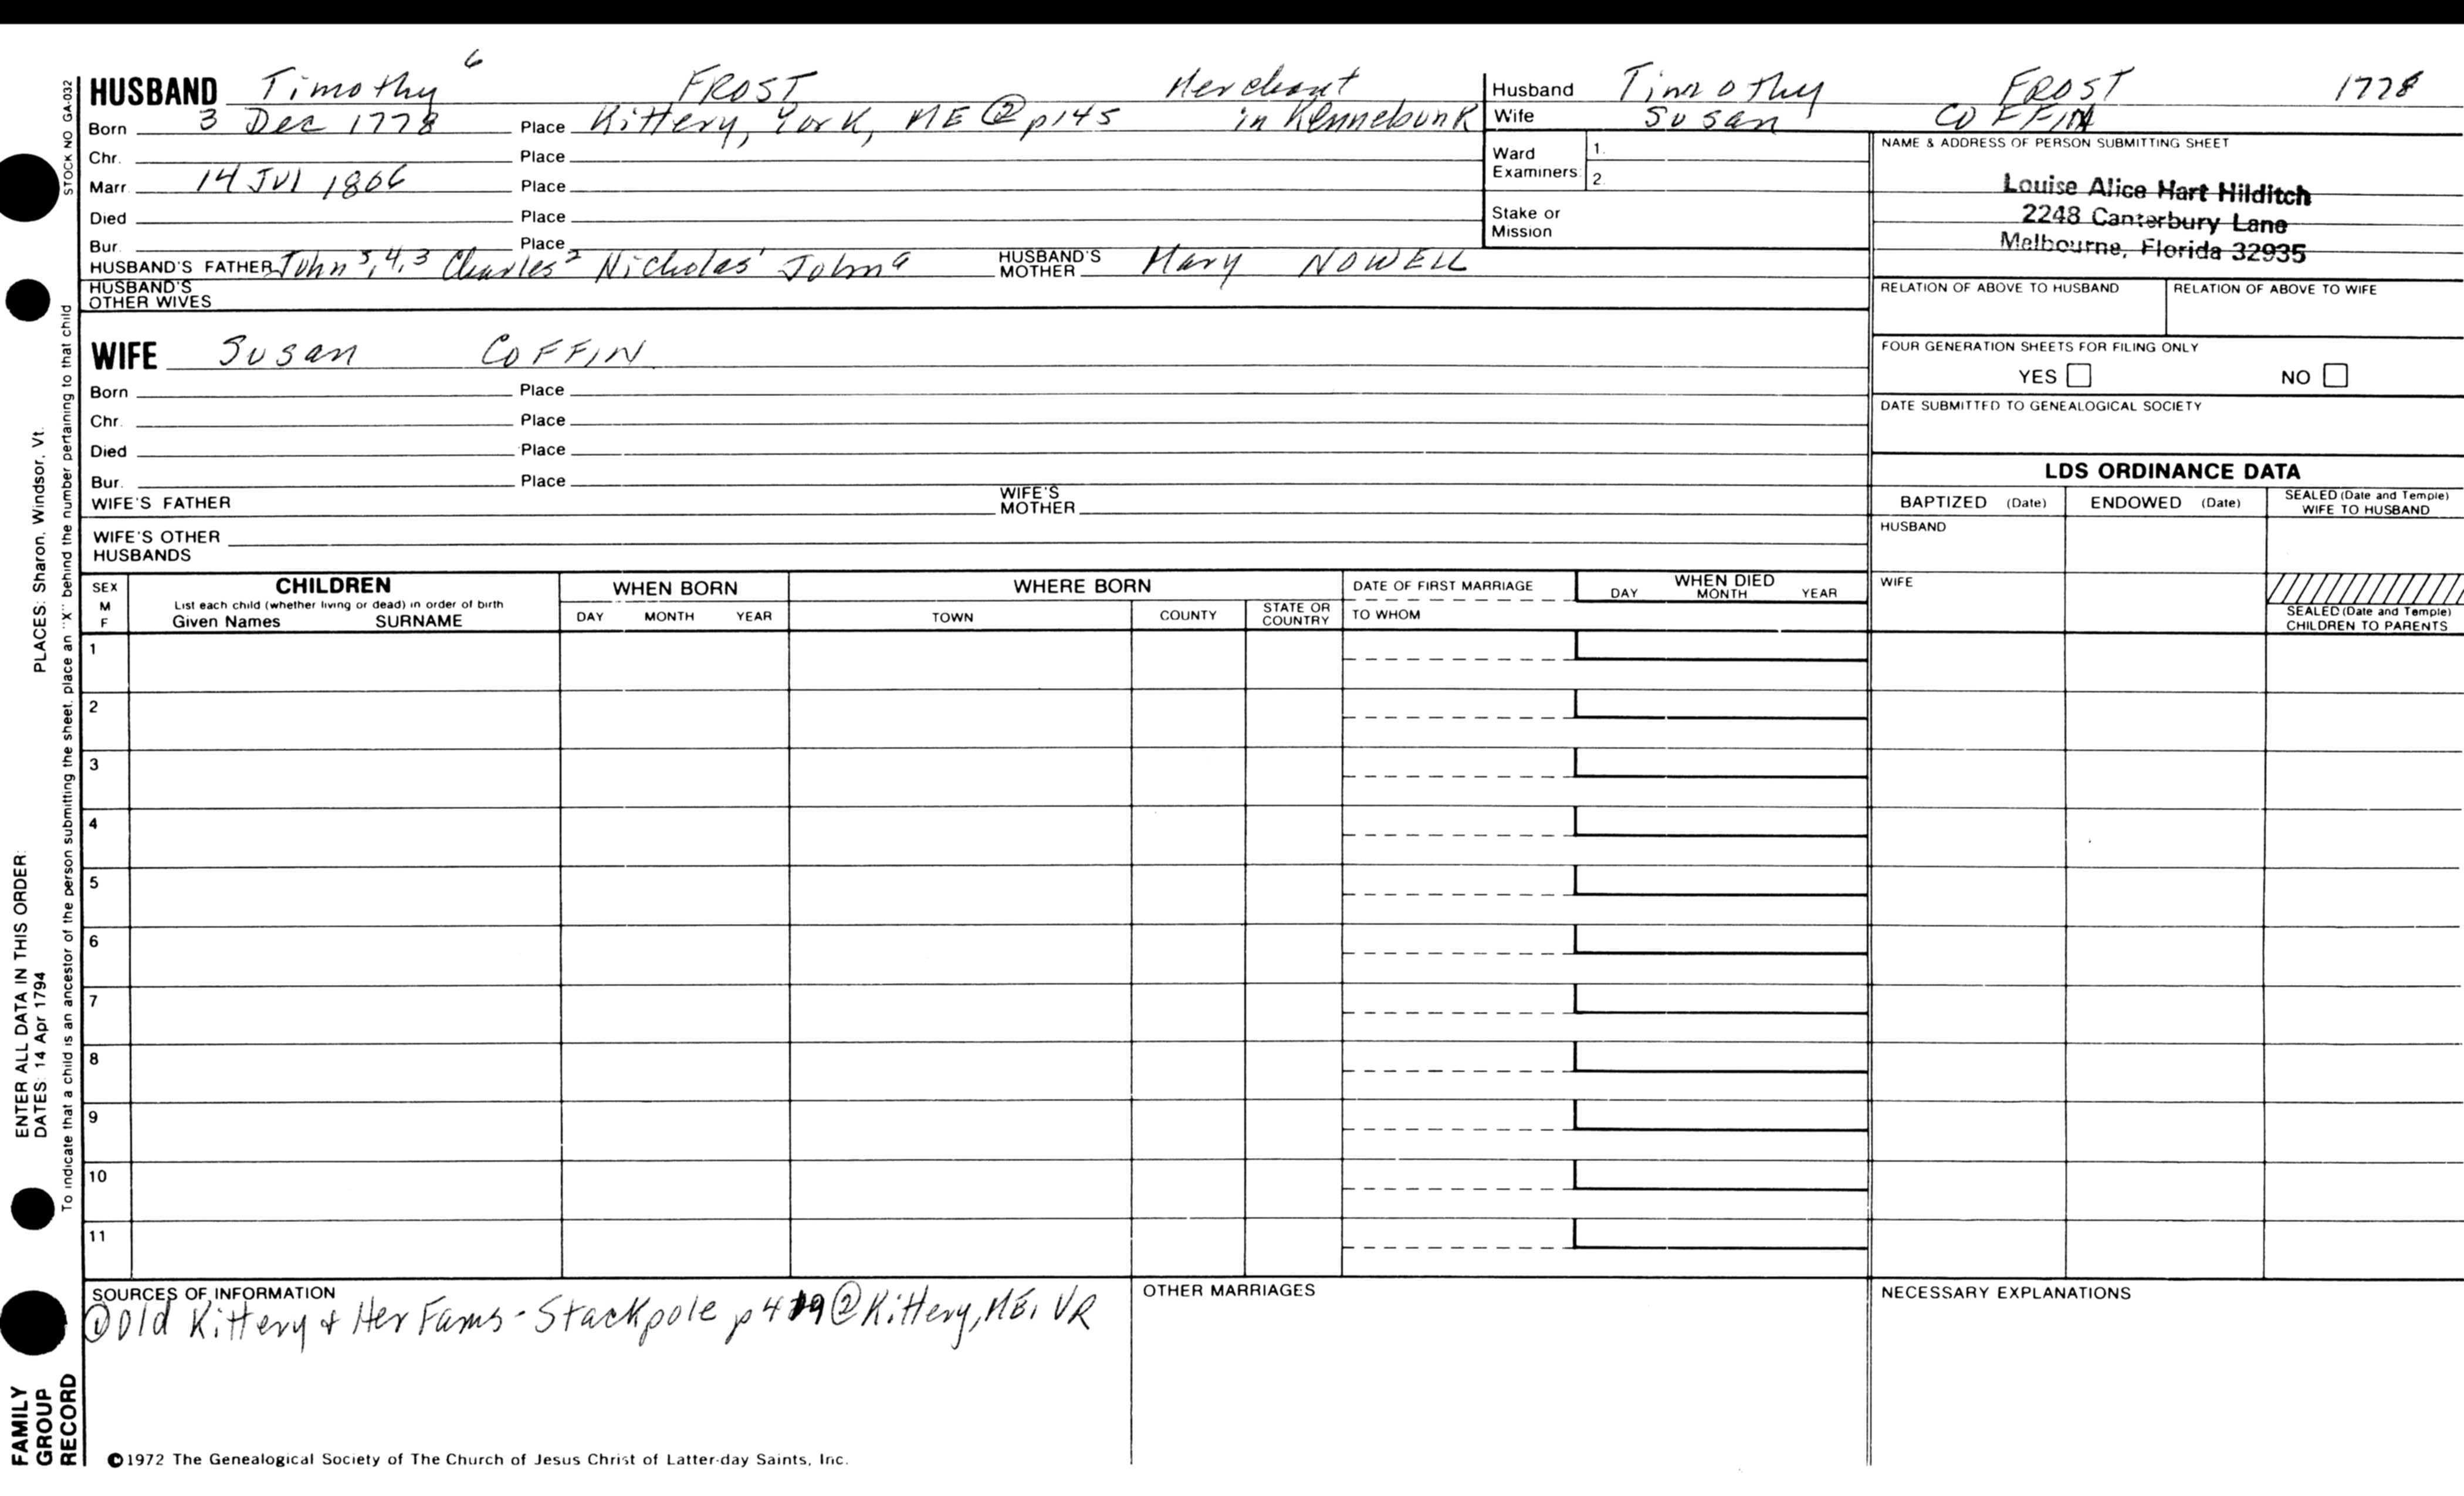 HUSBAND Timothy 6 FROST Merchant
Born 3 Dec 1778 Place Kittery, York, ME ② p145 in Kennebunk
Chr. Place
Marr. 14 Jul 1806 Place
Died Place
Bur. Place
HUSBAND'S FATHER John 5,4,3 Charles 2 Nicholas 1 John a HUSBAND'S MOTHER Mary NOWELL
HUSBAND'S OTHER WIVES
WIFE Susan COFFIN
Born Place
Chr. Place
Died Place
Bur. Place
WIFE'S FATHER WIFE'S MOTHER
WIFE'S OTHER HUSBANDS
Husband Timothy FROST 1778
Wife Susan COFFIN
Ward Examiners 1. 2.
Stake or Mission
NAME & ADDRESS OF PERSON SUBMITTING SHEET
Louise Alice Hart Hilditch
2248 Canterbury Lane
Melbourne, Florida 32935
RELATION OF ABOVE TO HUSBAND RELATION OF ABOVE TO WIFE
FOUR GENERATION SHEETS FOR FILING ONLY
YES NO
DATE SUBMITTED TO GENEALOGICAL SOCIETY
LDS ORDINANCE DATA
BAPTIZED (Date) ENDOWED (Date) SEALED (Date and Temple) WIFE TO HUSBAND
HUSBAND
WIFE
SEALED (Date and Temple) CHILDREN TO PARENTS
SEX M F
CHILDREN
List each child (whether living or dead) in order of birth
Given Names SURNAME
WHEN BORN
DAY MONTH YEAR
WHERE BORN
TOWN COUNTY STATE OR COUNTRY
DATE OF FIRST MARRIAGE
TO WHOM
WHEN DIED
DAY MONTH YEAR
1
2
3
4
5
6
7
8
9
10
11
SOURCES OF INFORMATION
① Old Kittery & Her Fams - Stackpole p 419 ② Kittery, ME, VR
OTHER MARRIAGES
NECESSARY EXPLANATIONS
©1972 The Genealogical Society of The Church of Jesus Christ of Latter-day Saints, Inc.
STOCK NO GA-032
To indicate that a child is an ancestor of the person submitting the sheet, place an "X" behind the number pertaining to that child
ENTER ALL DATA IN THIS ORDER:
DATES: 14 Apr 1794 PLACES: Sharon, Windsor, Vt.
FAMILY
GROUP
RECORD